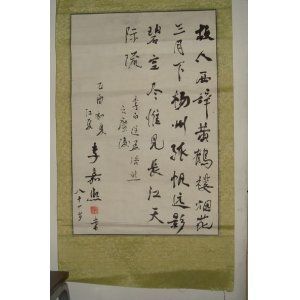 故人西辞黄鹤楼烟花
三月下杨州孤帆远影
碧空尽惟见长江天
际流
李白送孟浩然
之广陵
乙酉初夏
李嘉熙
八十一岁书